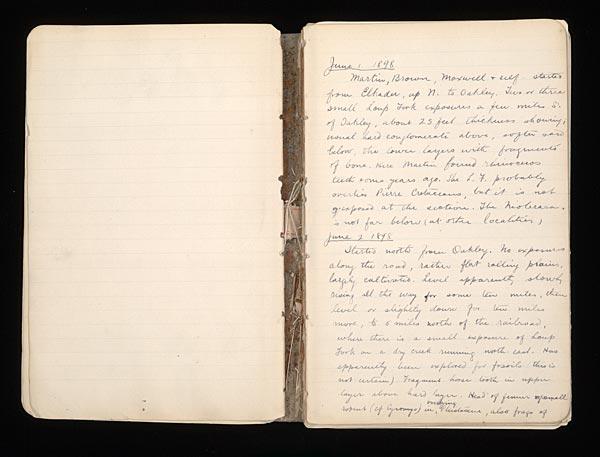 June 1 1898
Martin, Brown, Maxwell & self started
from Elkader, up N. to Oakley. Two or three
small Loup Fork exposures a few miles S.
of Oakley, about 25 feet thickness showing,
usual hard conglomerate above, softer sand
below, the lower layers with fragments
of bone. Here Martin found rhinoceros
teeth some years ago. The L. F. probably
overlies Pierre Cretaceous, but it is not
exposed at the section. The Niobrara
is not far below (at other localities)
June 2 1898
Started north from Oakley. No exposures
along the road, rather flat rolling prairie,
largely cultivated. Level apparently slowly
rising all the way for some ten miles, then
level or slightly down for ten miles
more, to 6 miles north of the railroad,
where there is a small exposure of Loup
Fork on a dry creek running north east. Has
apparently been explored for fossils (this is
not certain). Fragment horse tooth in upper
layer above hard layer. Head of femur of small
rodent (cf Geomys) in, also frags of